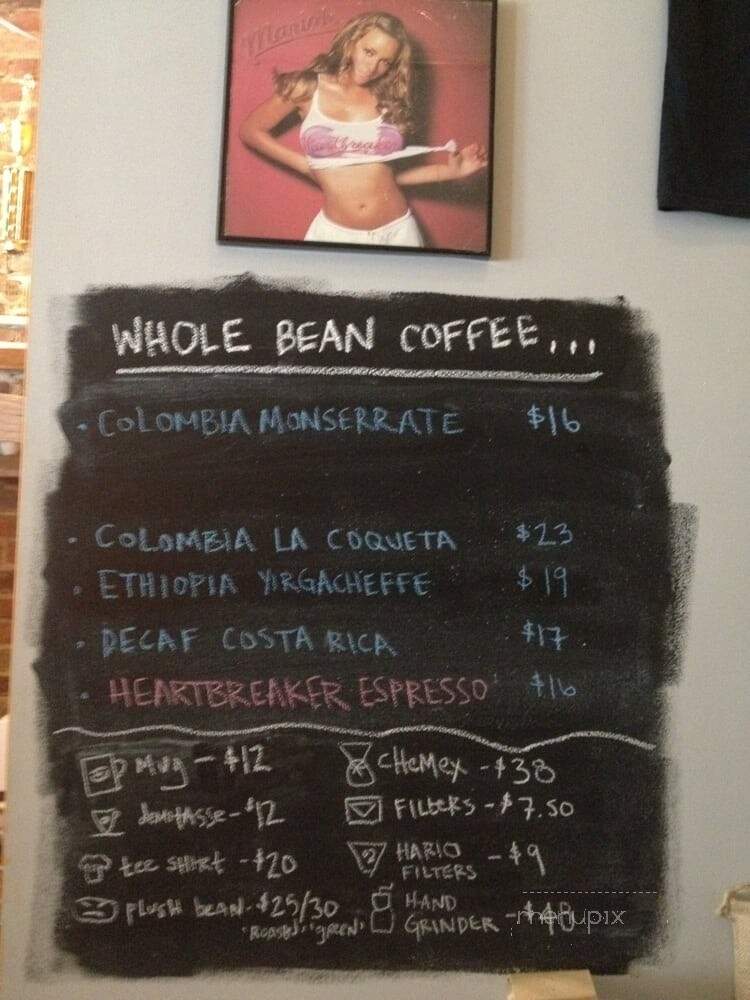 Mariah
Heartbreaker
WHOLE BEAN COFFEE...
• COLOMBIA MONSERRATE $16
• COLOMBIA LA COQUETA $23
• ETHIOPIA YIRGACHEFFE $19
• DECAF COSTA RICA $17
• HEARTBREAKER ESPRESSO $16
MUg - $12
demitasse - $12
tee SHIRT - $20
plush bean - $25/30
"ROAST" "GREEN"
CHeMex - $38
FILteRS - $7.50
HARIO
FILTERS - $9
HAND
GRINDER - $48
menupix